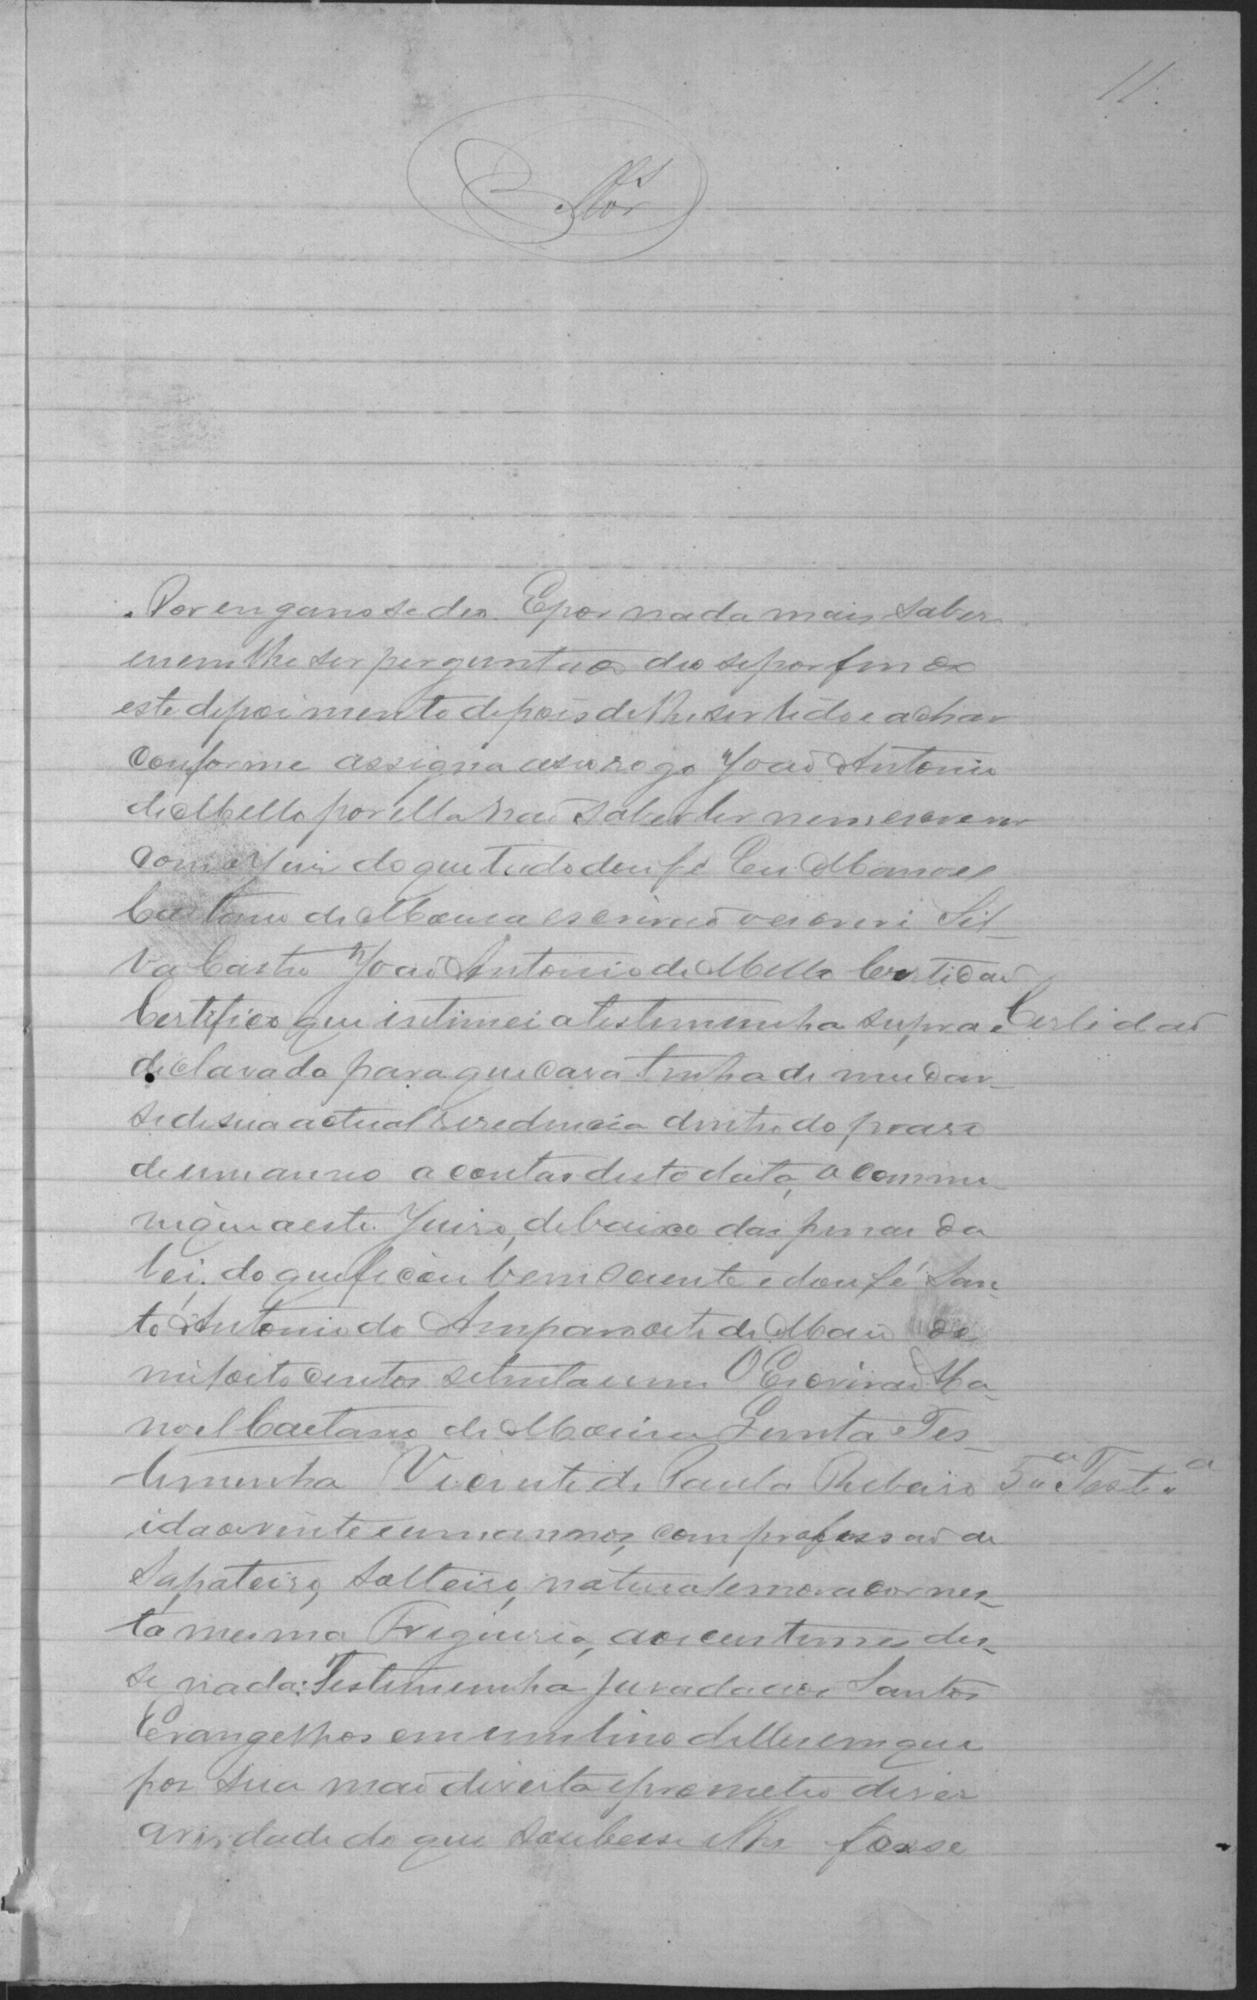 11.
. Por engano se deu. E por nada mais saber
e nem lhe ser perguntado deo se por findo
este depoimento depois de lhe ser lido e achar
conforme assigna a seu rogo João Antonio
de Mello por ella não saber ler nem escrever
com o Juiz do que tudo dou fé Eu Manoel
Caetano de Moura escrivão o escrevi Sil-
va Castro João Antonio de Mello Certidão
Certifico que intimei a testimunha supra e
Certidão
declarada para que caso tenha de mudar-
se de sua actual residencia dentro do praso
de um anno a contar desta data, o commu-
nique a este Juizo, debaixo das penas da
lei, do que ficou bem sciente e dou fé San-
to Antonio do Amparo de Maio de
mil oito centos setenta e um O Escrivão Ma-
noel Caetano de Moura Quinta Tes-
timunha Vicente de Paula Ribeiro
5ª Testª
idade vinte e um annos, com profissão de
Sapateiro, solteiro, natural e morador nes-
ta mesma Freguesia, aos custumes dis-
se nada: Testimunha jurada aos Santos
Evangelhos em um livro delles em que
por sua mão direita e prometeu dizer
a verdade do que soubesse e lhe fosse